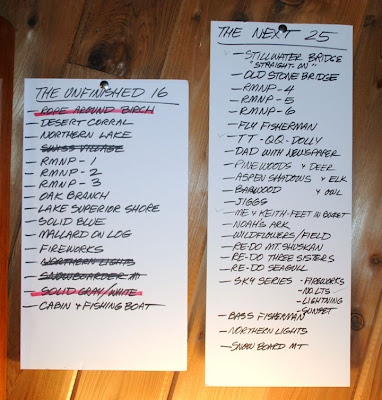 THE UNFINISHED 16
- ROPE AROUND BIRCH
- DESERT CORRAL
- NORTHERN LAKE
- SWISS VILLAGE
- RMNP - 1
- RMNP - 2
- RMNP - 3
- OAK BRANCH
- LAKE SUPERIOR SHORE
- SOLID BLUE
- MALLARD ON LOG
- FIREWORKS
- NORTHERN LIGHTS
- SNOWBOARDER MT
- SOLID GRAY/WHITE
- CABIN & FISHING BOAT
THE NEXT 25
- STILLWATER BRIDGE
"STRAIGHT-ON"
- OLD STONE BRIDGE
- RMNP - 4
- RMNP - 5
- RMNP - 6
- FLY FISHERMAN
- TT-QQ-DOLLY
- DAD WITH NEWSPAPER
- PINE WOODS & DEER
- ASPEN SHADOWS & ELK
- BARWOOD & OWL
- JIGGS
- ME & KEITH-FEET IN BUCKET
- NOAH'S ARK
- WILDFLOWERS/FIELD
- RE-DO MT. SHUSKAN
- RE-DO THREE SISTERS
- RE-DO SEAGULL
- SKY SERIES - FIREWORKS
- NO. LTS
- LIGHTNING
- SUNSET
- BASS FISHERMAN
- NORTHERN LIGHTS
- SNOW BOARD MT